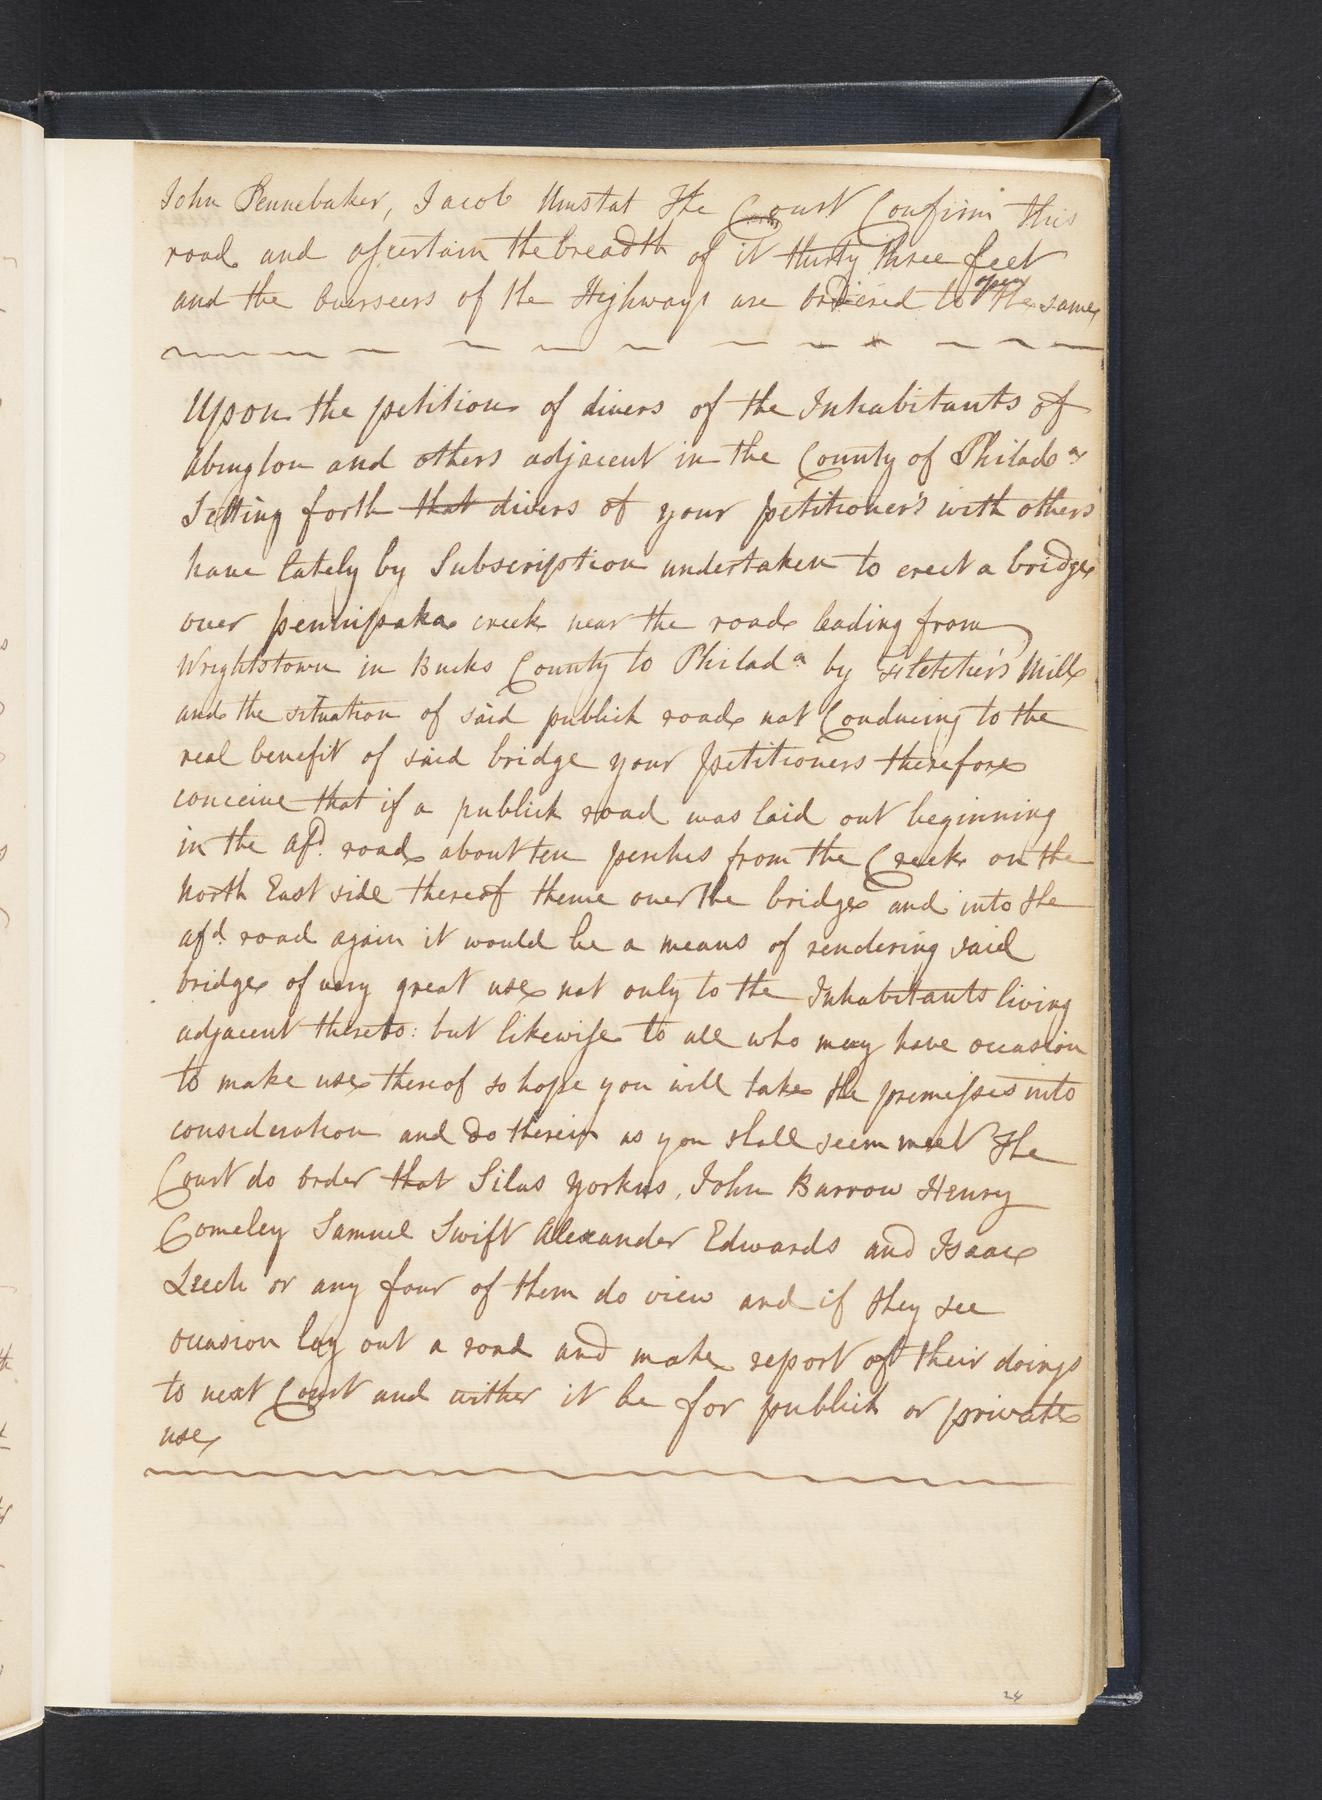 John Pennebaker, Jacob Umstat The Court Confirm this
road and ascertain the breadth of it thirty three feet
and the Overseers of the Highways are Ordered to open the same
Upon the petition of divers of the Inhabitants of
Abington and others adjacent in the County of Philada
Setting forth that divers of your petitioner's with others
have lately by Subscription undertaken to erect a bridge
over pennipaka creek near the road leading from
Wrightstown in Bucks County to Philada by Fletcher's Mill
and the situation of said publick road not Conducing to the
real benefit of said bridge your petitioners therefore
conceive that if a publick road was laid out beginning
in the afd. road about ten perches from the Creek on the
North East side thereof thence over the bridge and into the
afd. road again it would be a means of rendering said
bridge of very great use not only to the Inhabitants living
adjacent thereto: but likewise to all who may have occasion
to make use thereof so hope you will take the premisses into
consideration and do therein as you shall seem meet The
Court do order that Silas Yorkus, John Barrow Henry
Comeley Samuel Swift Alexander Edwards and Isaac
Leech or any four of them do view and if they see
occasion lay out a road and make report of their doings
to next Court and wither it be for publick or private
use
24